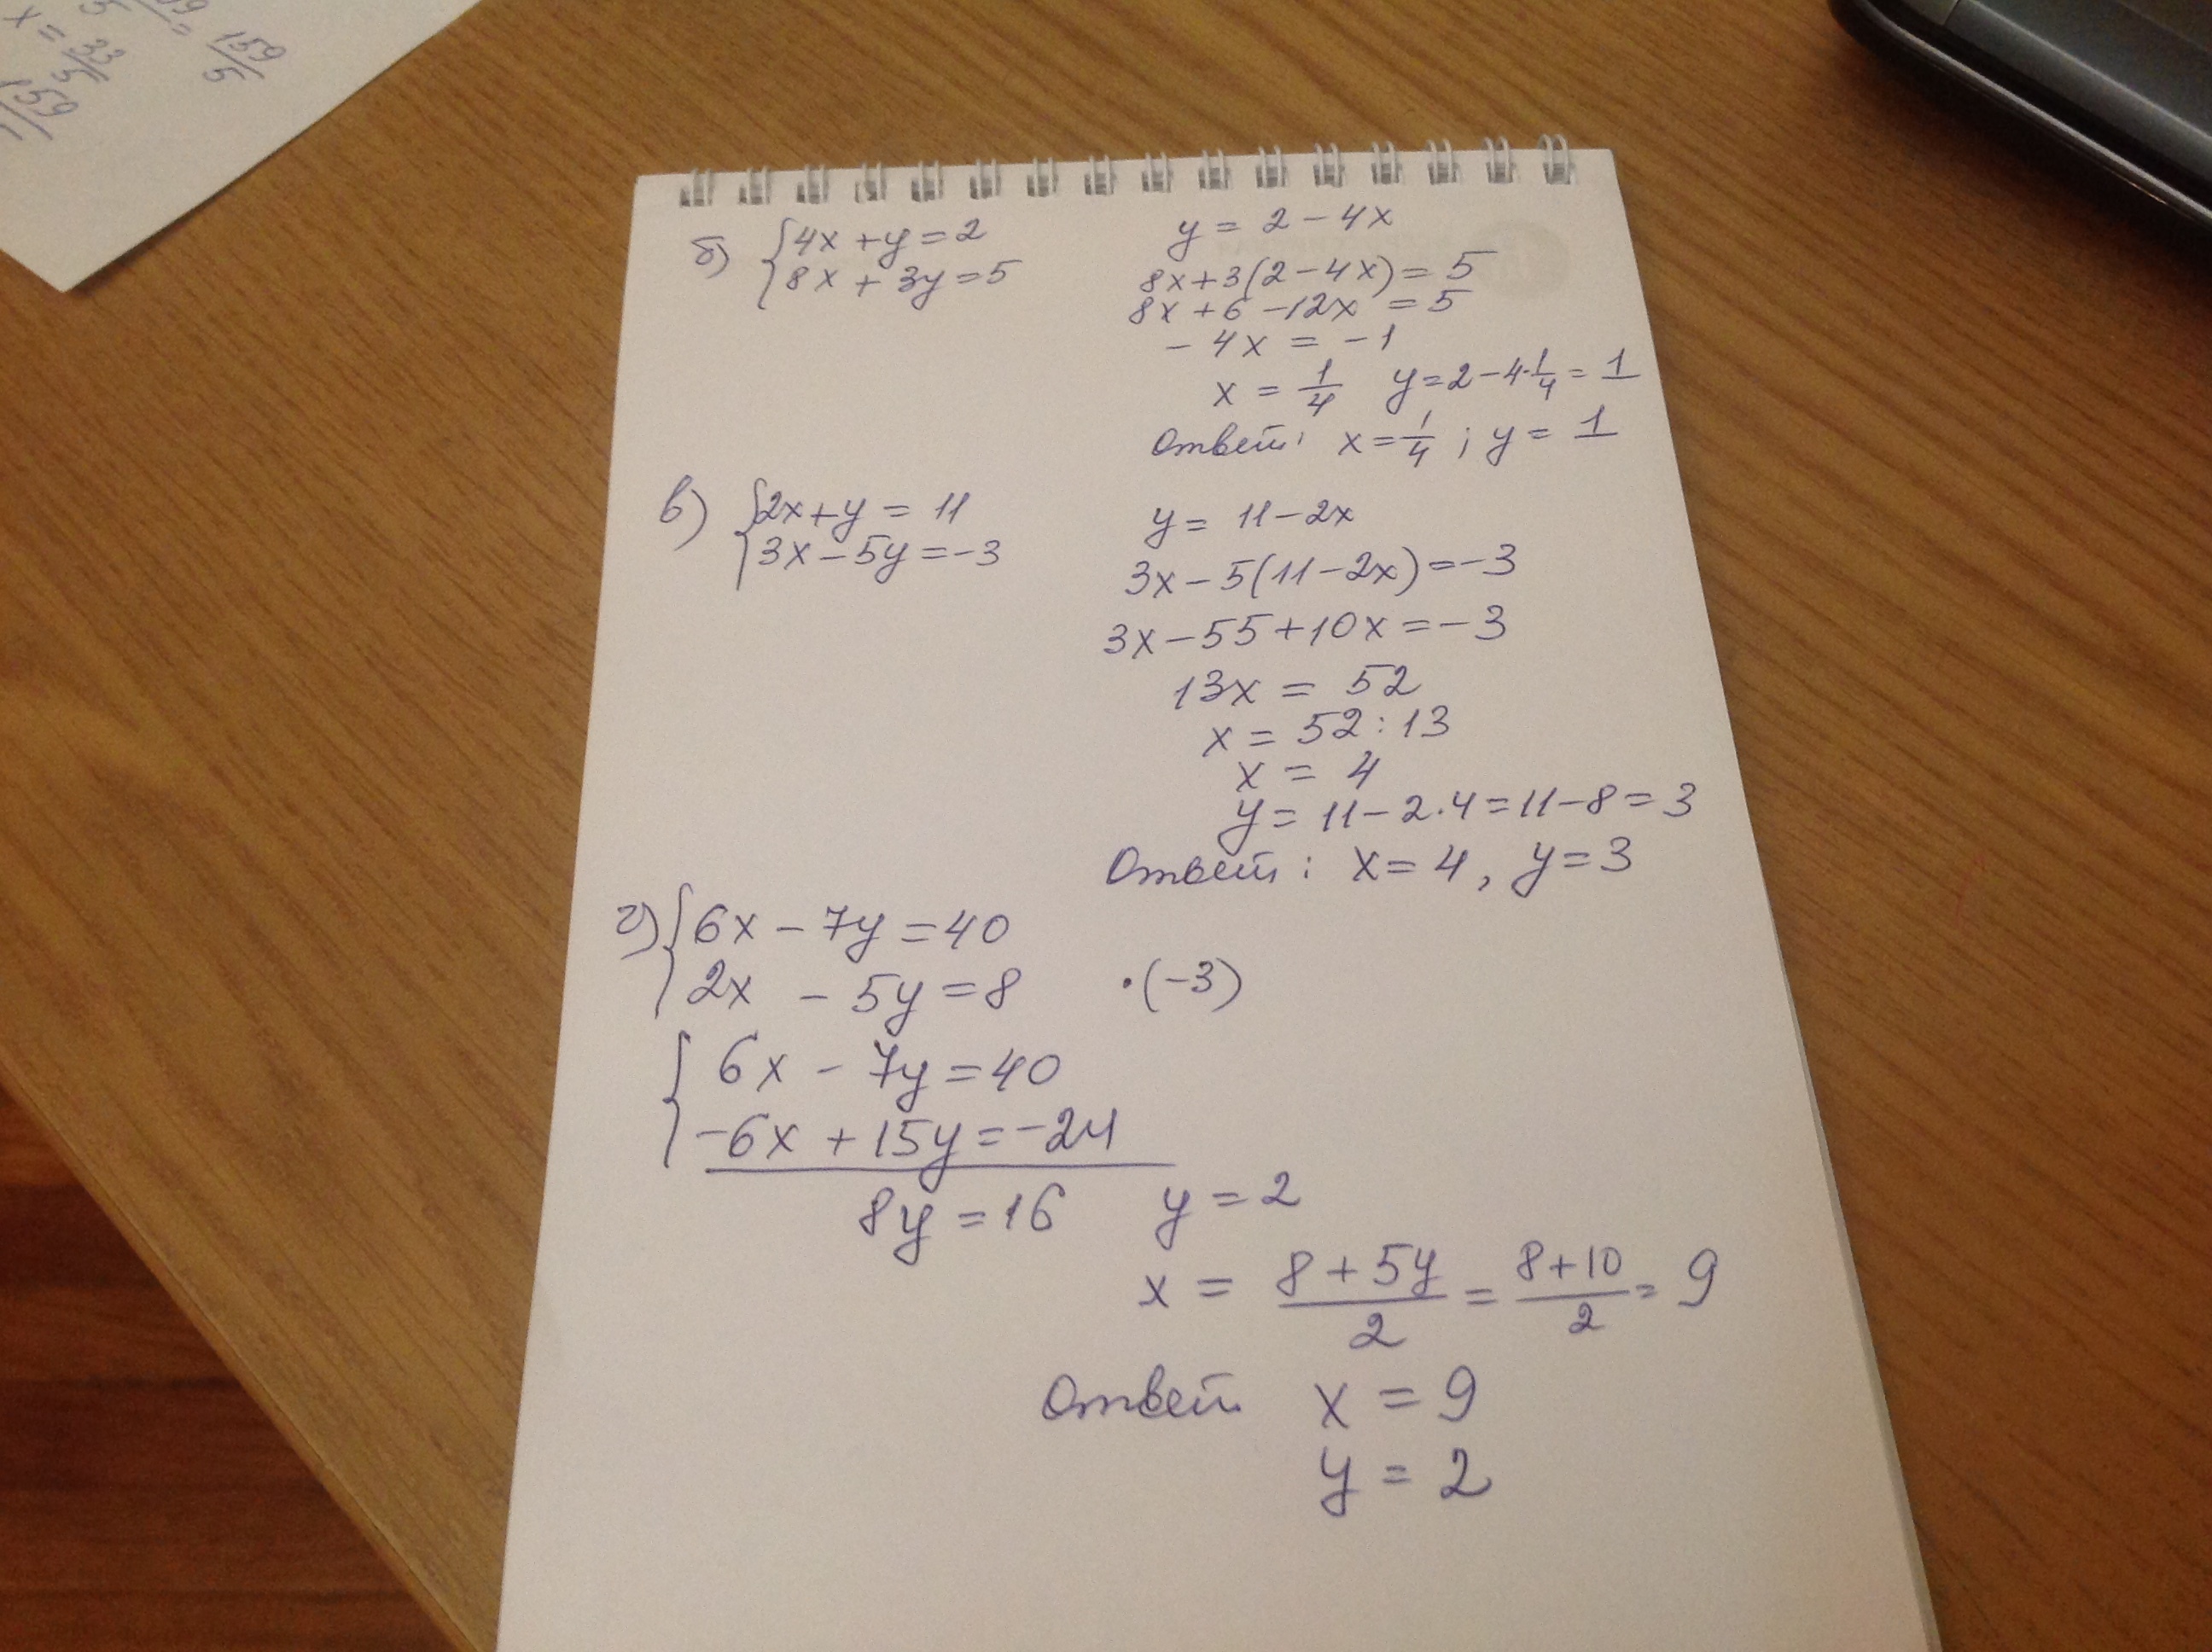 б) {4x + y = 2
8x + 3y = 5
y = 2 - 4x
8x + 3(2 - 4x) = 5
8x + 6 - 12x = 5
- 4x = - 1
x = 1/4 y = 2 - 4·1/4 = 1
Ответ: x = 1/4 ; y = 1
в) {2x + y = 11
3x - 5y = -3
y = 11 - 2x
3x - 5(11 - 2x) = -3
3x - 55 + 10x = -3
13x = 52
x = 52 : 13
x = 4
y = 11 - 2·4 = 11 - 8 = 3
Ответ: x = 4, y = 3
г) {6x - 7y = 40
2x - 5y = 8 ·(-3)
{6x - 7y = 40
-6x + 15y = -24
8y = 16 y = 2
x = (8 + 5y)/2 = (8 + 10)/2 = 9
Ответ x = 9
y = 2
159/5